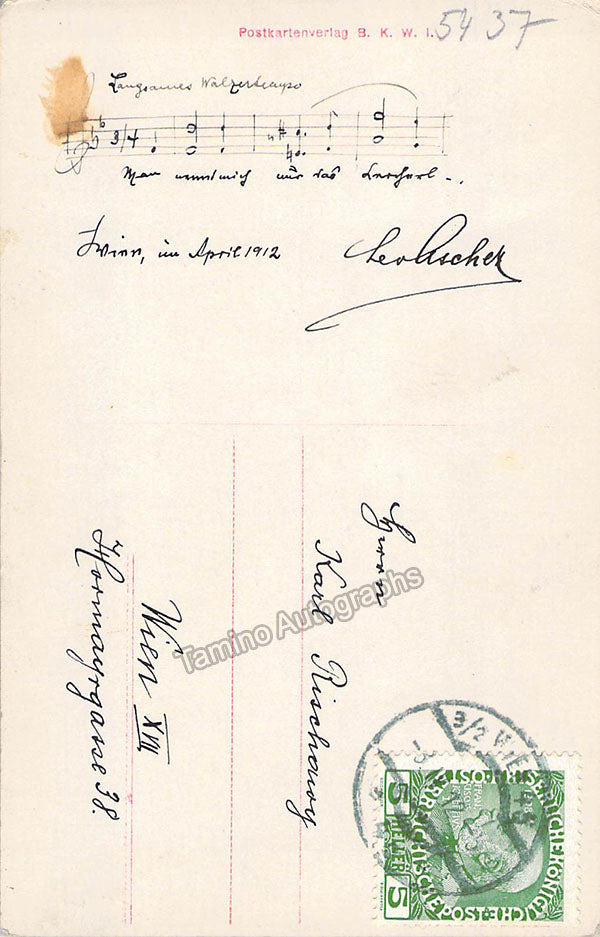 Postkartenverlag B. K. W. I.
5437
Langsames Walzertempo
3/4
Man nennt mich nur das Lercherl -.
Wien, im April 1912
Leo Ascher
Herrn
Karl
Wien XVIII
Hormayrgasse 38.
Tamino Autographs
3/2 WIEN
5 HELLER 5